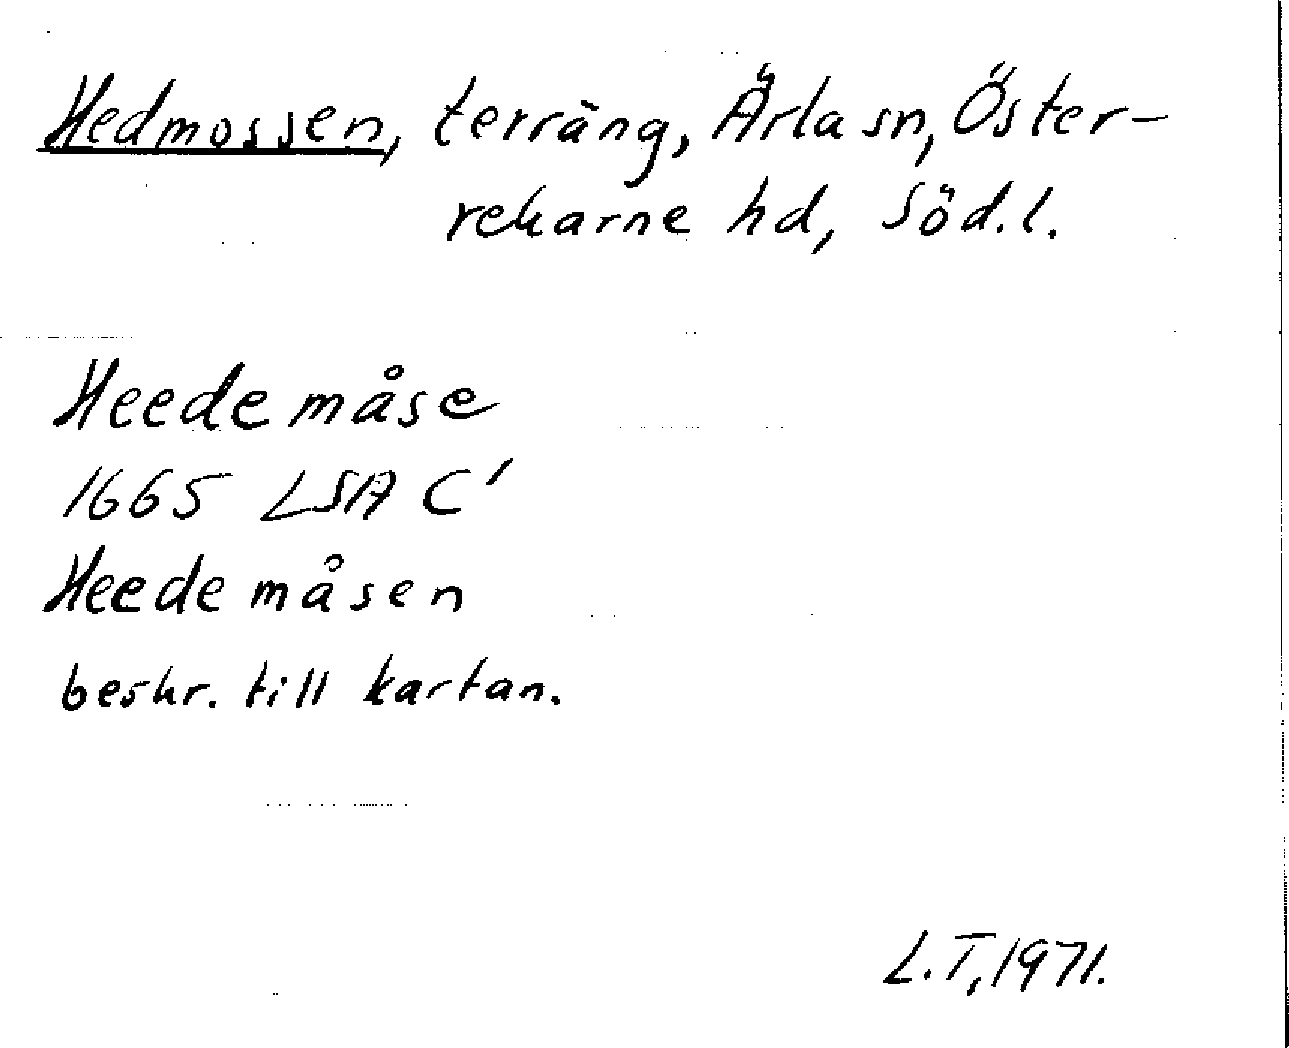 Hedmossen, terräng, Ärla sn, Öster-
rekarne hd, Söd.l.
Heede måse
1665 LSA C'
Heede måsen
beskr. till kartan.
L.T, 1971.